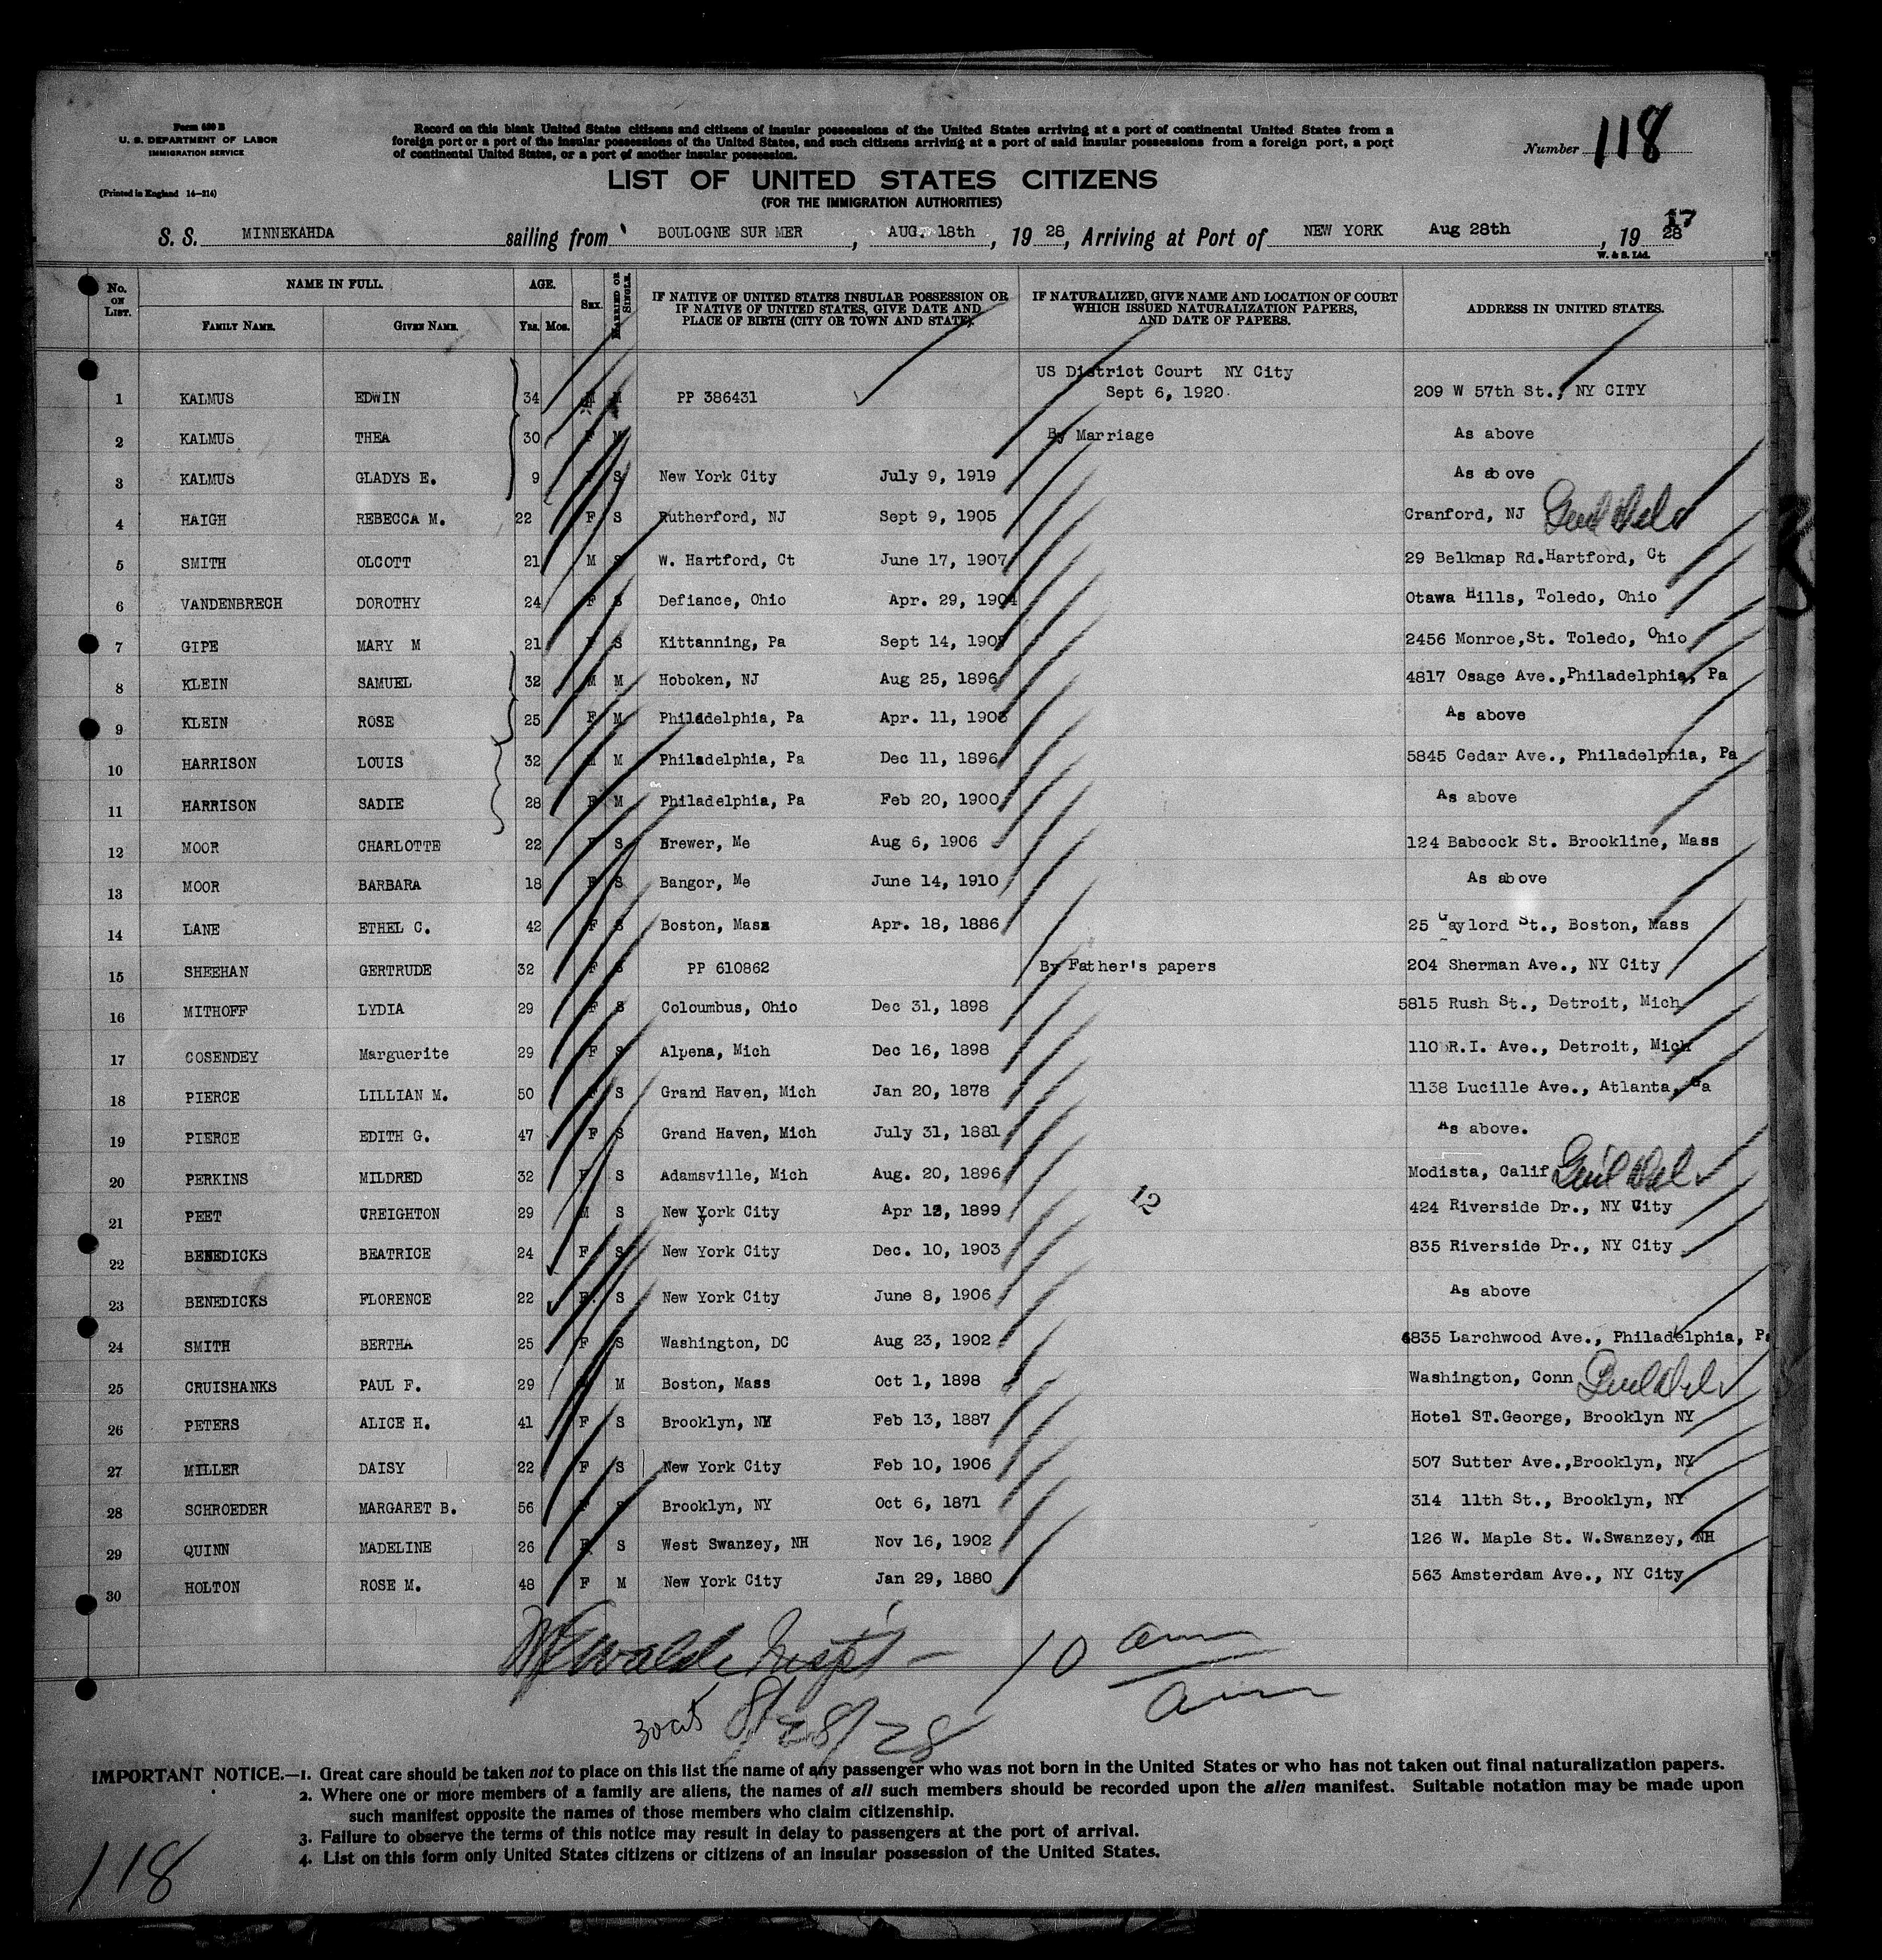 Form 630 B
U. S. DEPARTMENT OF LABOR
IMMIGRATION SERVICE
(Printed in England 14—214)
Record on this blank United States citizens and citizens of insular possessions of the United States arriving at a port of continental United States from a
foreign port or a port of the insular possessions of the United States, and such citizens arriving at a port of said insular possessions from a foreign port, a port
of continental United States, or a port of another insular possession.
Number 118
LIST OF UNITED STATES CITIZENS
(FOR THE IMMIGRATION AUTHORITIES)
17
S. S. MINNEKAHDA sailing from BOULOGNE SUR MER, AUG. 18th, 19 28, Arriving at Port of NEW YORK Aug 28th, 19 28
W. & S. Ltd.
No. ON LIST. NAME IN FULL. AGE. SEX. MARRIED OR SINGLE. IF NATIVE OF UNITED STATES INSULAR POSSESSION OR IF NATIVE OF UNITED STATES, GIVE DATE AND PLACE OF BIRTH (CITY OR TOWN AND STATE). IF NATURALIZED, GIVE NAME AND LOCATION OF COURT WHICH ISSUED NATURALIZATION PAPERS, AND DATE OF PAPERS. ADDRESS IN UNITED STATES.
FAMILY NAME. GIVEN NAME. YRS. MOS.
US District Court NY City
1 KALMUS EDWIN 34 M M PP 386431 Sept 6, 1920 209 W 57th St., NY CITY
2 KALMUS THEA 30 F M By Marriage As above
3 KALMUS GLADYS E. 9 F S New York City July 9, 1919 As above
4 HAIGH REBECCA M. 22 F S Rutherford, NJ Sept 9, 1905 Cranford, NJ
5 SMITH OLCOTT 21 M S W. Hartford, Ct June 17, 1907 29 Belknap Rd.Hartford, Ct
6 VANDENBRECH DOROTHY 24 F S Defiance, Ohio Apr. 29, 1904 Otawa Hills, Toledo, Ohio
7 GIPE MARY M 21 F S Kittanning, Pa Sept 14, 190 2456 Monroe,St. Toledo, Ohio
8 KLEIN SAMUEL 32 M M Hoboken, NJ Aug 25, 1896 4817 Osage Ave.,Philadelphia, Pa
9 KLEIN ROSE 25 F M Philadelphia, Pa Apr. 11, 1903 As above
10 HARRISON LOUIS 32 M M Philadelphia, Pa Dec 11, 1896 5845 Cedar Ave., Philadelphia, Pa
11 HARRISON SADIE 28 F M Philadelphia, Pa Feb 20, 1900 As above
12 MOOR CHARLOTTE 22 F S Brewer, Me Aug 6, 1906 124 Babcock St. Brookline, Mass
13 MOOR BARBARA 18 F S Bangor, Me June 14, 1910 As above
14 LANE ETHEL C. 42 F S Boston, Mass Apr. 18, 1886 25 Gaylord St., Boston, Mass
15 SHEEHAN GERTRUDE 32 F S PP 610862 By Father's papers 204 Sherman Ave., NY City
16 MITHOFF LYDIA 29 F S Coloumbus, Ohio Dec 31, 1898 5815 Rush St., Detroit, Mich
17 COSENDEY Marguerite 29 F S Alpena, Mich Dec 16, 1898 110 R.I. Ave., Detroit, Mich
18 PIERCE LILLIAN M. 50 F S Grand Haven, Mich Jan 20, 1878 1138 Lucille Ave., Atlanta, Ga
19 PIERCE EDITH G. 47 F S Grand Haven, Mich July 31, 1881 As above.
20 PERKINS MILDRED 32 F S Adamsville, Mich Aug. 20, 1896 Modista, Calif
21 PEET CREIGHTON 29 M S New York City Apr 12, 1899 424 Riverside Dr., NY City
12
22 BENEDICKS BEATRICE 24 F S New York City Dec. 10, 1903 835 Riverside Dr., NY City
23 BENEDICKS FLORENCE 22 F. S New York City June 8, 1906 As above
24 SMITH BERTHA 25 F S Washington, DC Aug 23, 1902 4835 Larchwood Ave., Philadelphia, Pa
25 CRUISHANKS PAUL F. 29 M Boston, Mass Oct 1, 1898 Washington, Conn
26 PETERS ALICE H. 41 F S Brooklyn, NY Feb 13, 1887 Hotel ST.George, Brooklyn NY
27 MILLER DAISY 22 F S New York City Feb 10, 1906 507 Sutter Ave.,Brooklyn, NY
28 SCHROEDER MARGARET B. 56 F S Brooklyn, NY Oct 6, 1871 314 11th St., Brooklyn, NY
29 QUINN MADELINE 26 F S West Swanzey, NH Nov 16, 1902 126 W. Maple St. W.Swanzey, NH
30 HOLTON ROSE M. 48 F M New York City Jan 29, 1880 563 Amsterdam Ave., NY City
10
8/28/28
IMPORTANT NOTICE.—1. Great care should be taken not to place on this list the name of any passenger who was not born in the United States or who has not taken out final naturalization papers.
2. Where one or more members of a family are aliens, the names of all such members should be recorded upon the alien manifest. Suitable notation may be made upon
such manifest opposite the names of those members who claim citizenship.
3. Failure to observe the terms of this notice may result in delay to passengers at the port of arrival.
4. List on this form only United States citizens or citizens of an insular possession of the United States.
118